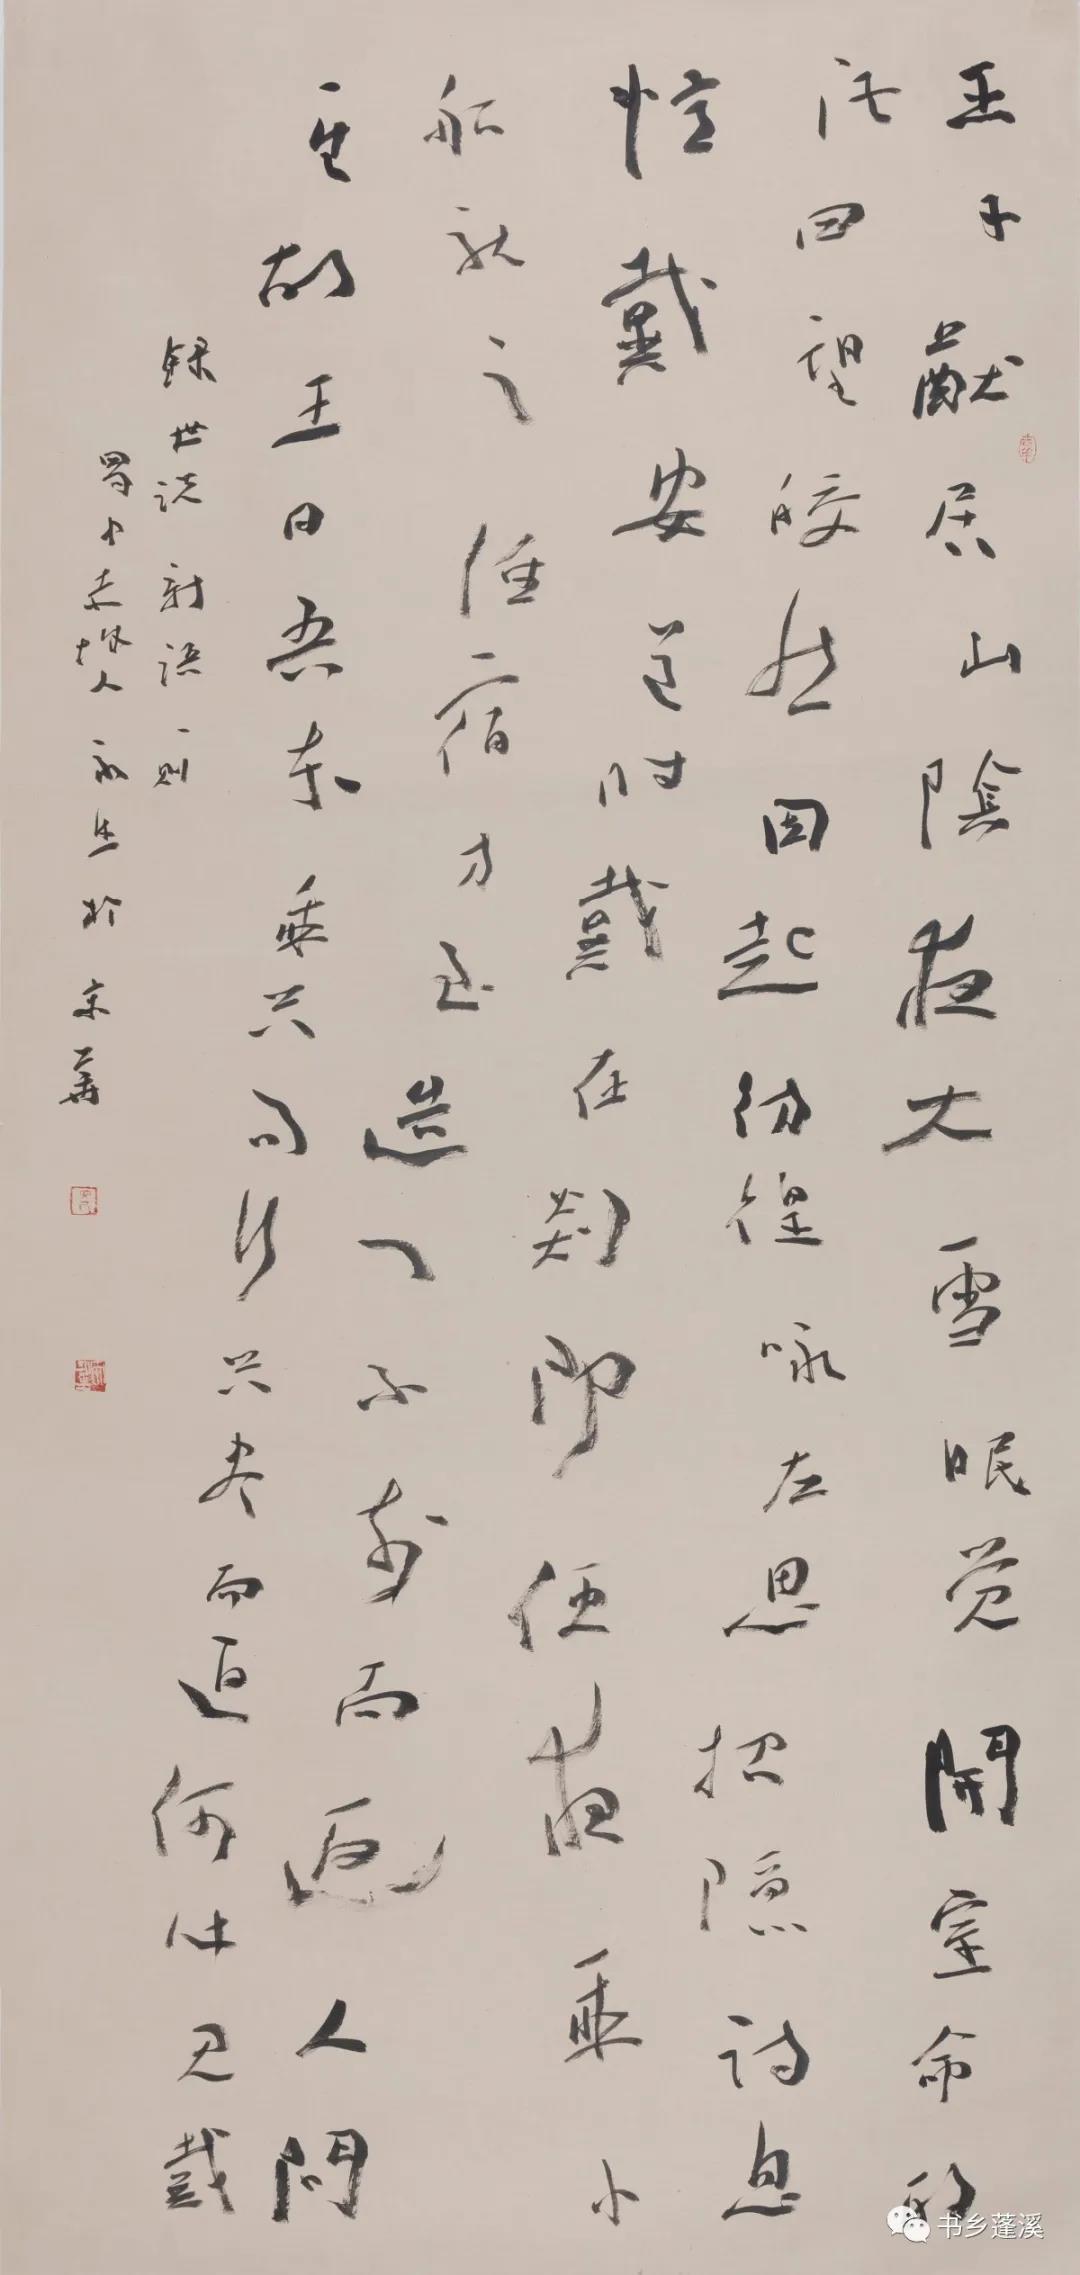 王子猷居山陰夜大雪眠觉開室命酌
酒四望皎然因起彷徨咏左思招隐诗忽
憶戴安道时戴在剡即便夜乘小
船就之经宿方至造门不前而返人問
其故王曰吾本乘兴而行兴尽而返何必见戴
録世说新语一则
蜀中人於京華
书乡蓬溪